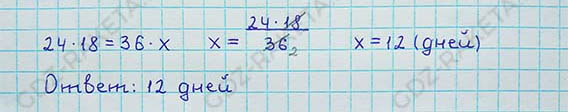 24·18=36·x x= 24·18/36 2 x=12 (дней)
Ответ: 12 дней
GDZ-RAKETA